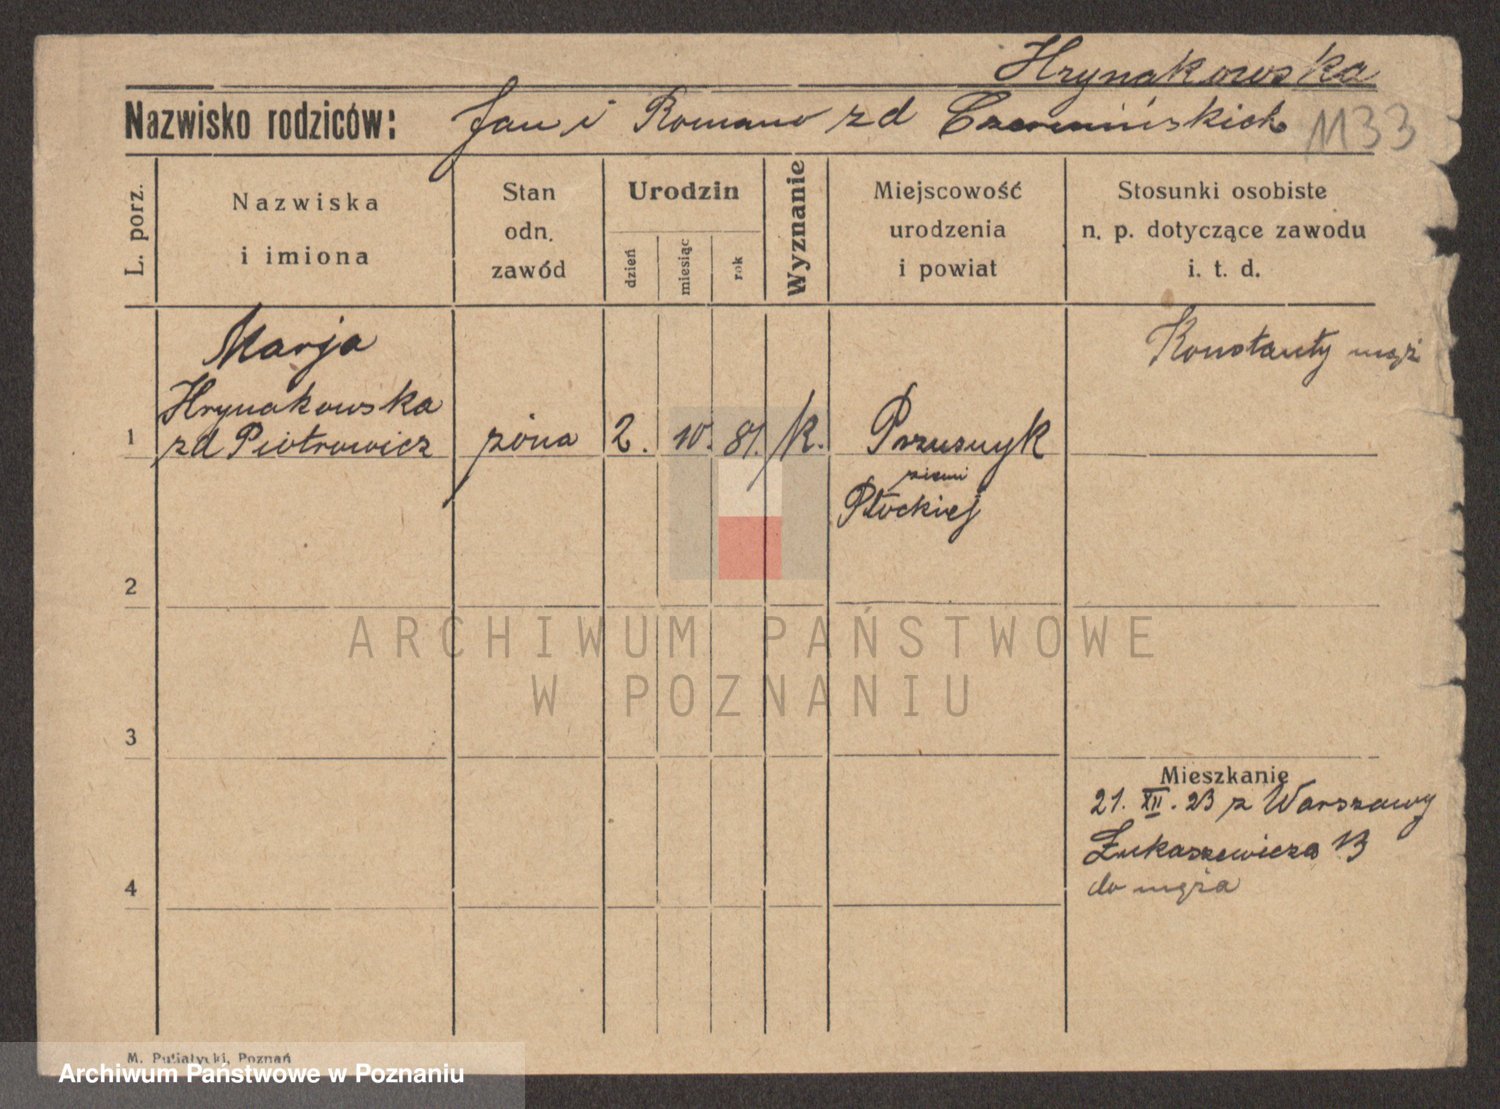 Hrynakowska
Nazwisko rodziców: Jan i Romana zd Czermińskich 1133
L. porz.
Nazwiska
i imiona
Stan
odn.
zawód
Urodzin
dzień
miesiąc
rok
Wyznanie
Miejscowość
urodzenia
i powiat
Stosunki osobiste
n. p. dotyczące zawodu
i. t. d.
Marja
Hrynakowska
1 zd Piotrowicz żona 2. 10. 81. k. Przusnyk
ziemi
Płockiej
Konstanty mąż
2
3
4
Mieszkanie
21. XII. 23 z Warszawy
Łukaszewicza 13
do męża
M. Putiatycki, Poznań
ARCHIWUM PAŃSTWOWE
W POZNANIU
Archiwum Państwowe w Poznaniu